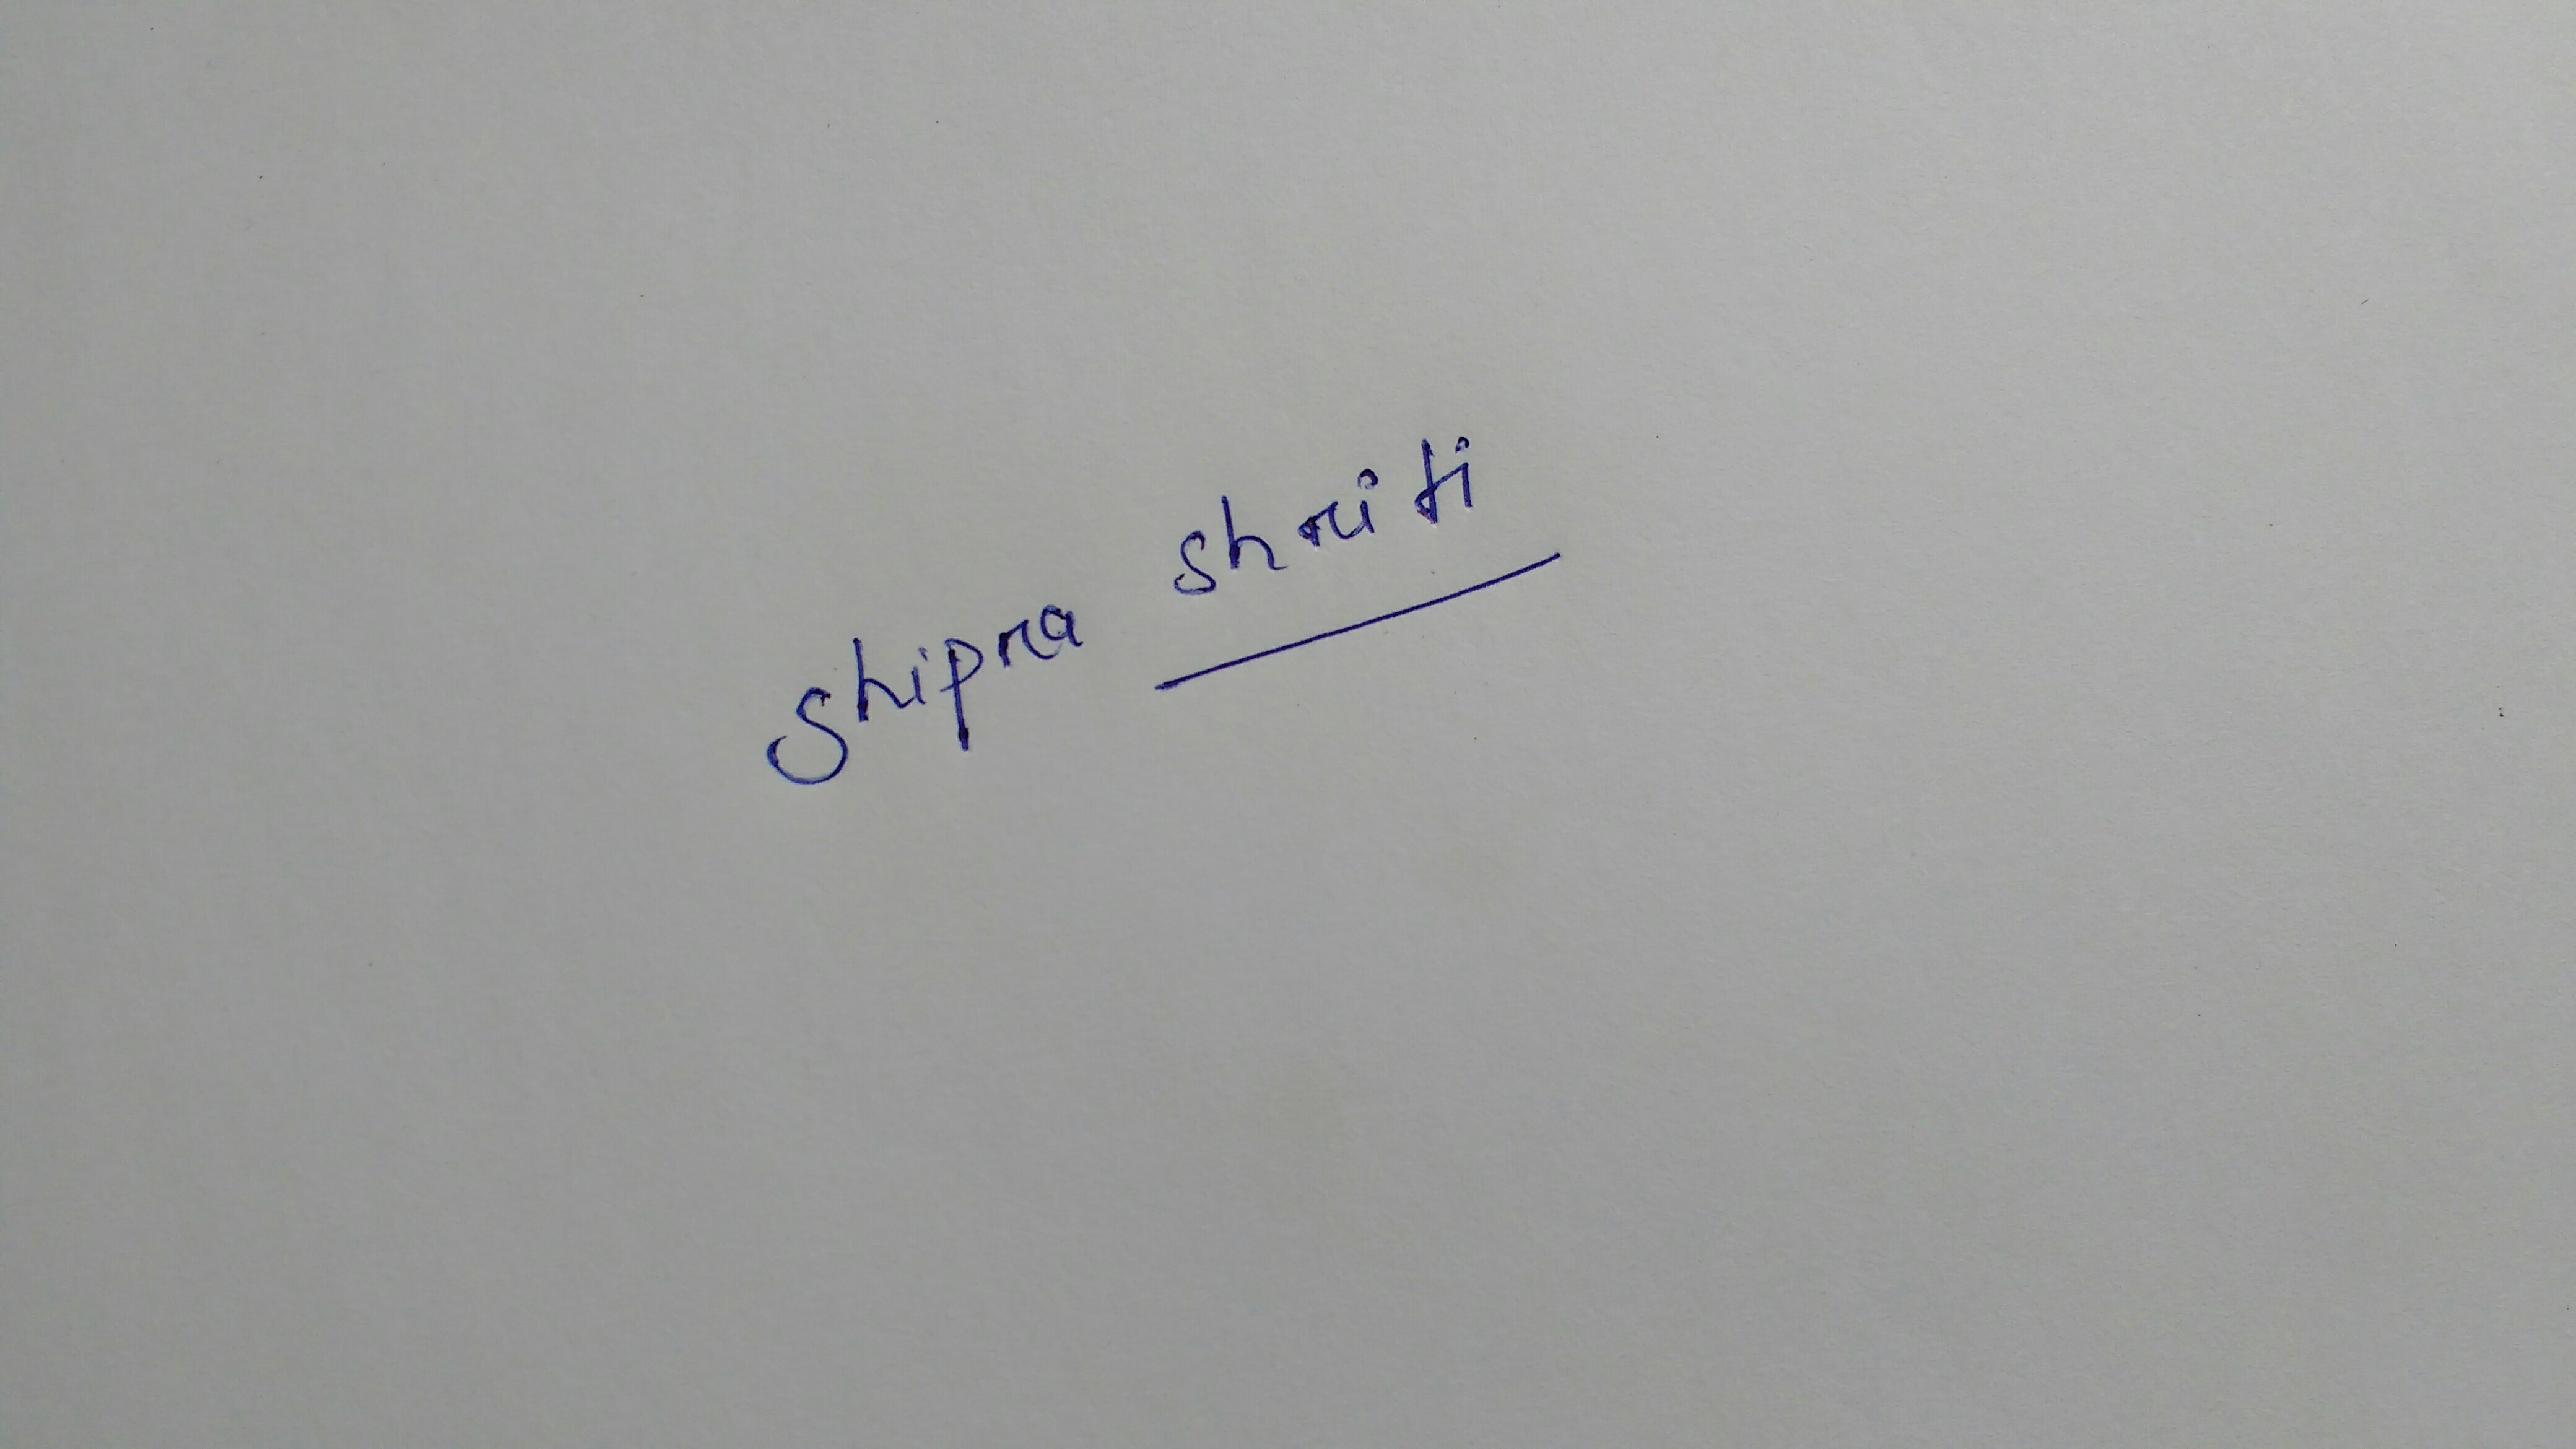 Shipra shriti